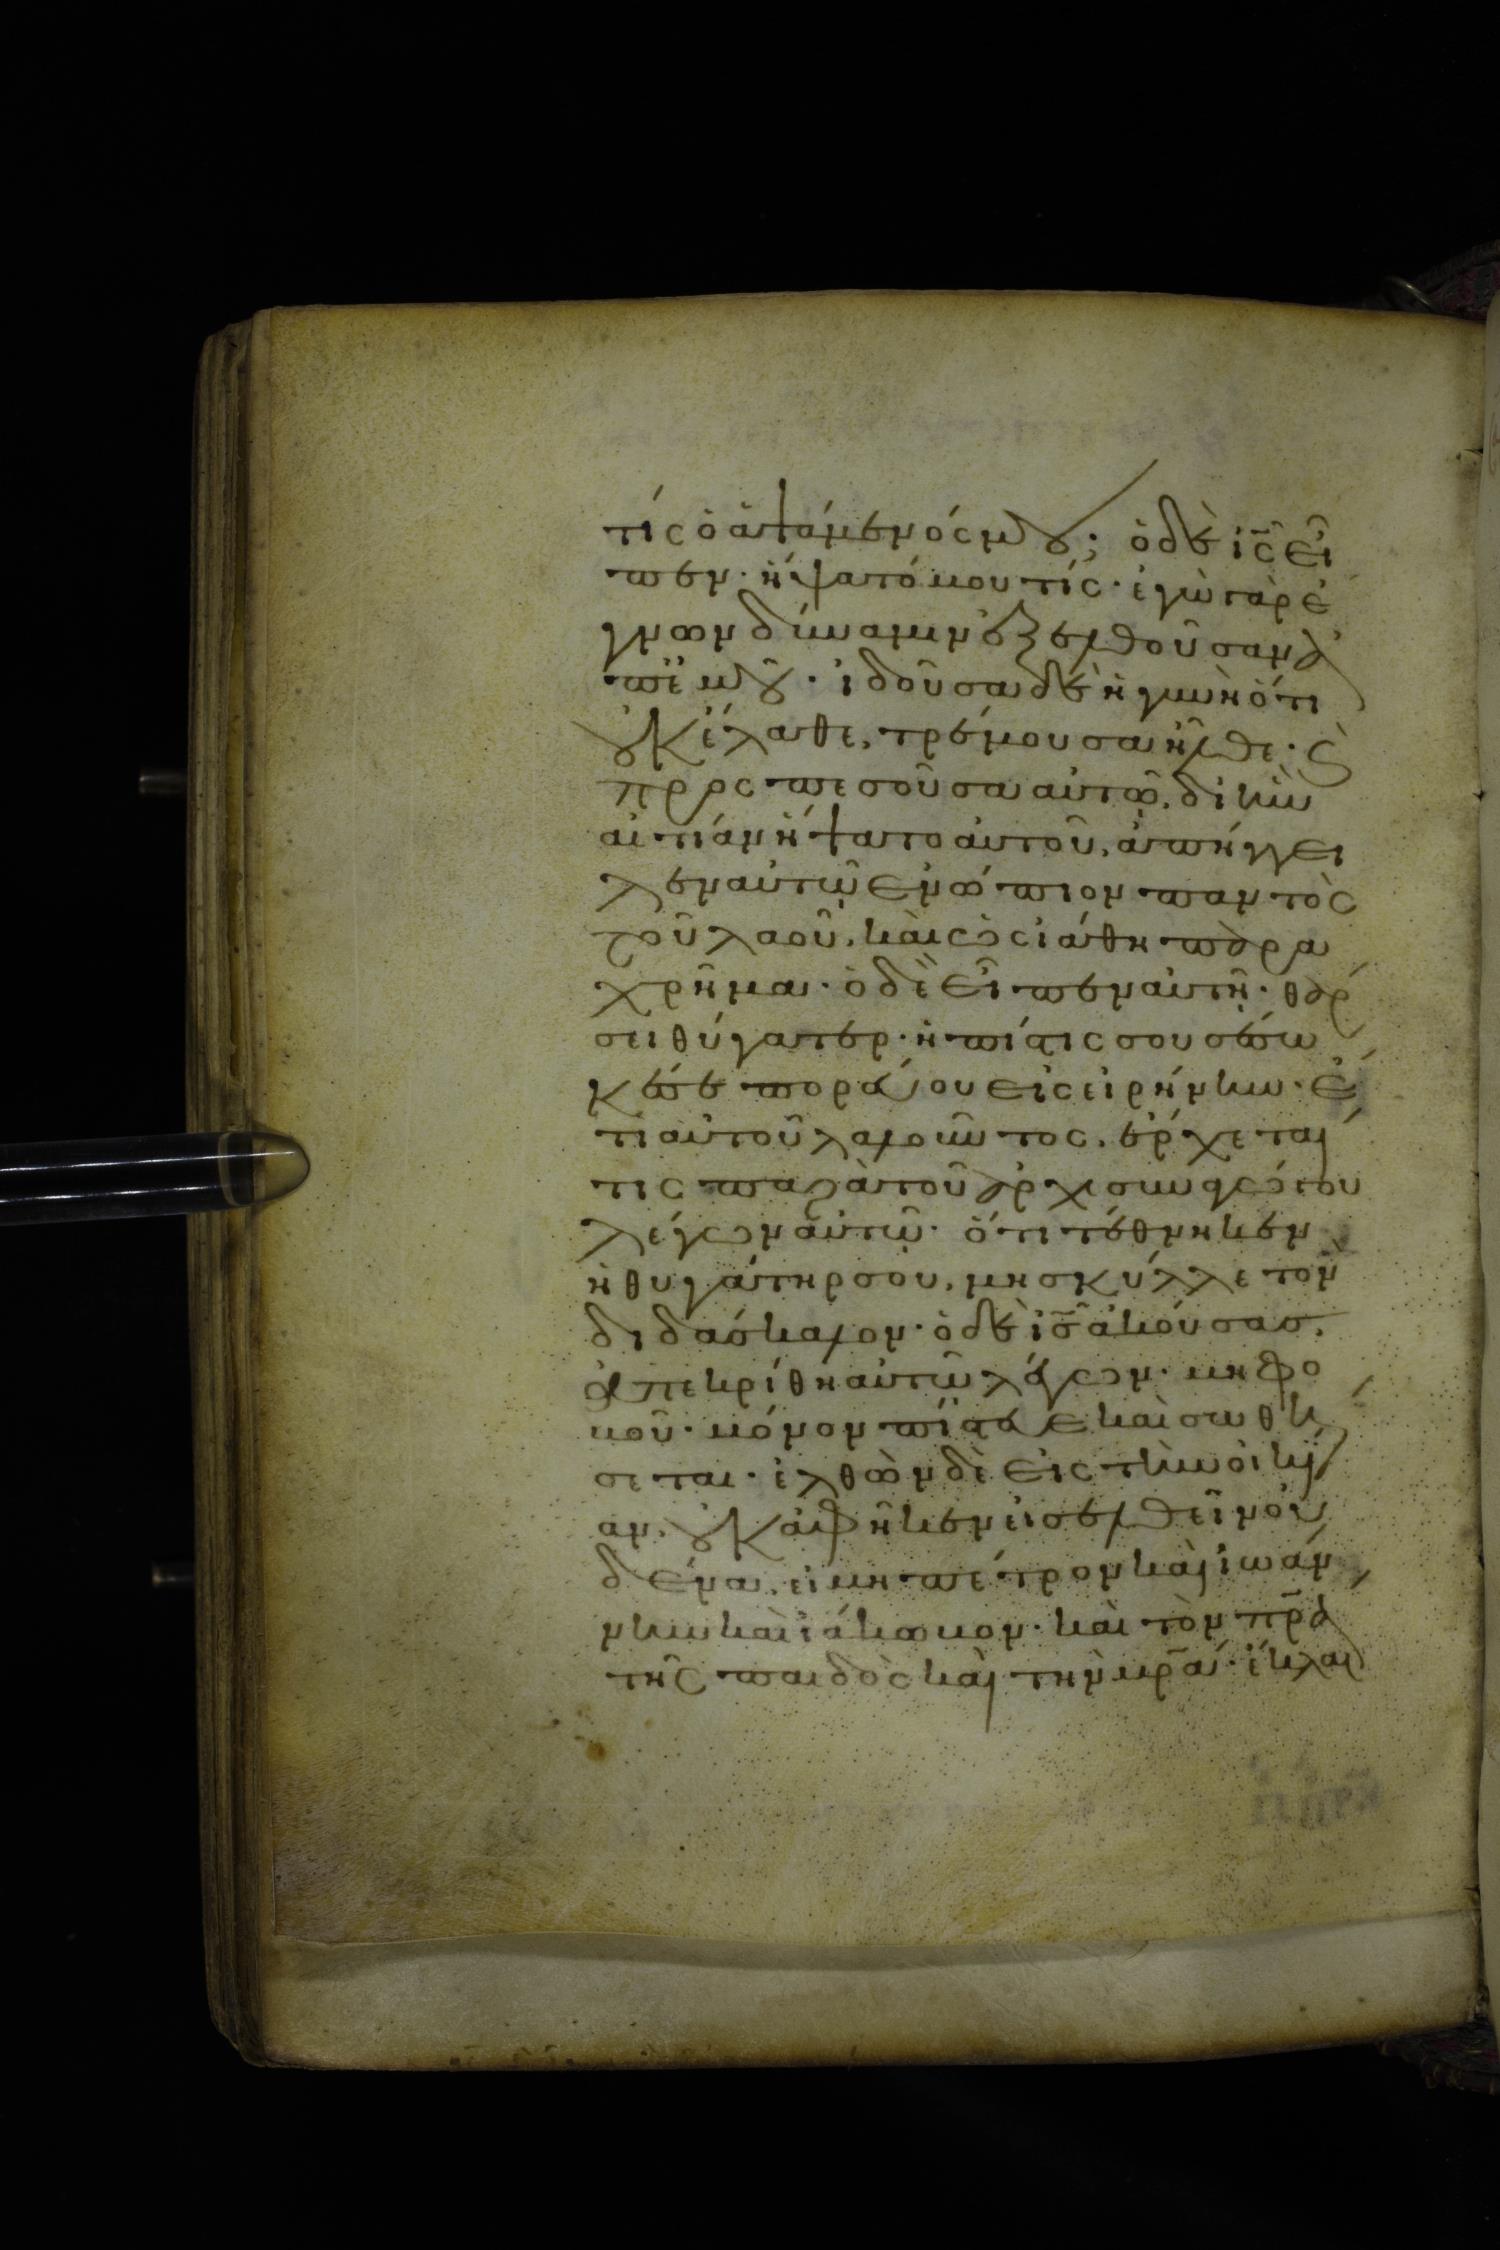 τίς ὁ ἁψάμενός μου; ὁ δὲ ις̅ εἶ
πεν· ἥψατό μου τίς· ἐγὼ γὰρ ἔ
γνων δύναμιν ἐξελθοῦσαν ἀ
π' ἐμοῦ· ἰδοῦσα δὲ ἡ γυνὴ ὅτι
οὐκ ἔλαθε, τρέμουσα ἦλθε· ϗ
προςπεσοῦσα αὐτῶ, δι' ἣν
αἰτίαν ἥψατο αὐτοῦ, ἀπήγγει
λεν αὐτῶ ἐνώπιον παντὸς
τοῦ λαοῦ, καὶ ὡς ἰάθη παρα
χρῆμα· ὁ δὲ εἶπεν αὐτῆ· θάρ
σει θύγατερ· ἡ πίστις σου σέσω
κέ σε πορεύου εἰς εἰρήνην· ἔ
τι αὐτοῦ λαλοῦντος, ἔρχεταί
τις παρὰ τοῦ ἀρχισυναγώγου
λέγων αὐτῶ· ὅτι τέθνηκεν
ἡ θυγάτηρ σου, μὴ σκύλλε τὸν
διδάσκαλον· ὁ δὲ ις̅ ἀκούσας,
ἀπεκρίθη αὐτῶ λέγων· μὴ φο
βοῦ· μόνον πίστευε καὶ σωθή
σεται· ἐλθὼν δὲ εἰς τὴν οἰκί
αν, οὐκ ἀφῆκεν εἰσελθεῖν οὐ
δένα, εἰ μὴ πέτρον καὶ ἰωάν
νην καὶ ἰάκωβον· καὶ τὸν πρ̅α
τῆς παιδὸς καὶ τὴν μρ̅α· ἔκλαι